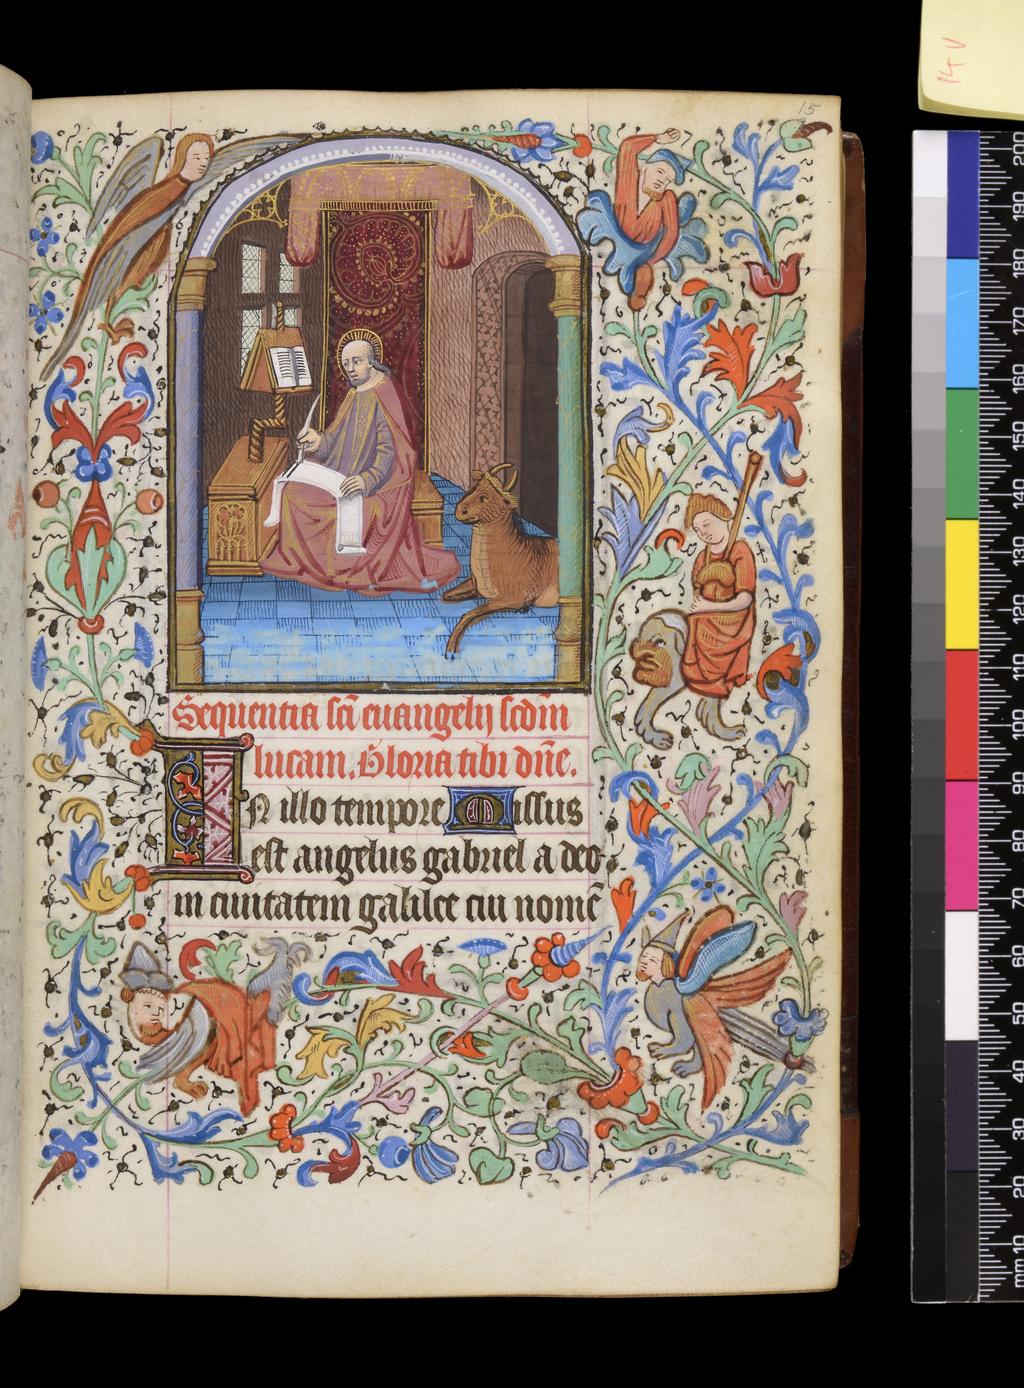 14 V
15
Sequentia sci euangelij scdm
lucam. Gloria tibi dne.
In illo tempore Missus
est angelus gabriel a deo
in ciuitatem galilee cui nome
mm 10 20 30 40 50 60 70 80 90 100 110 120 130 140 150 160 170 180 190 200